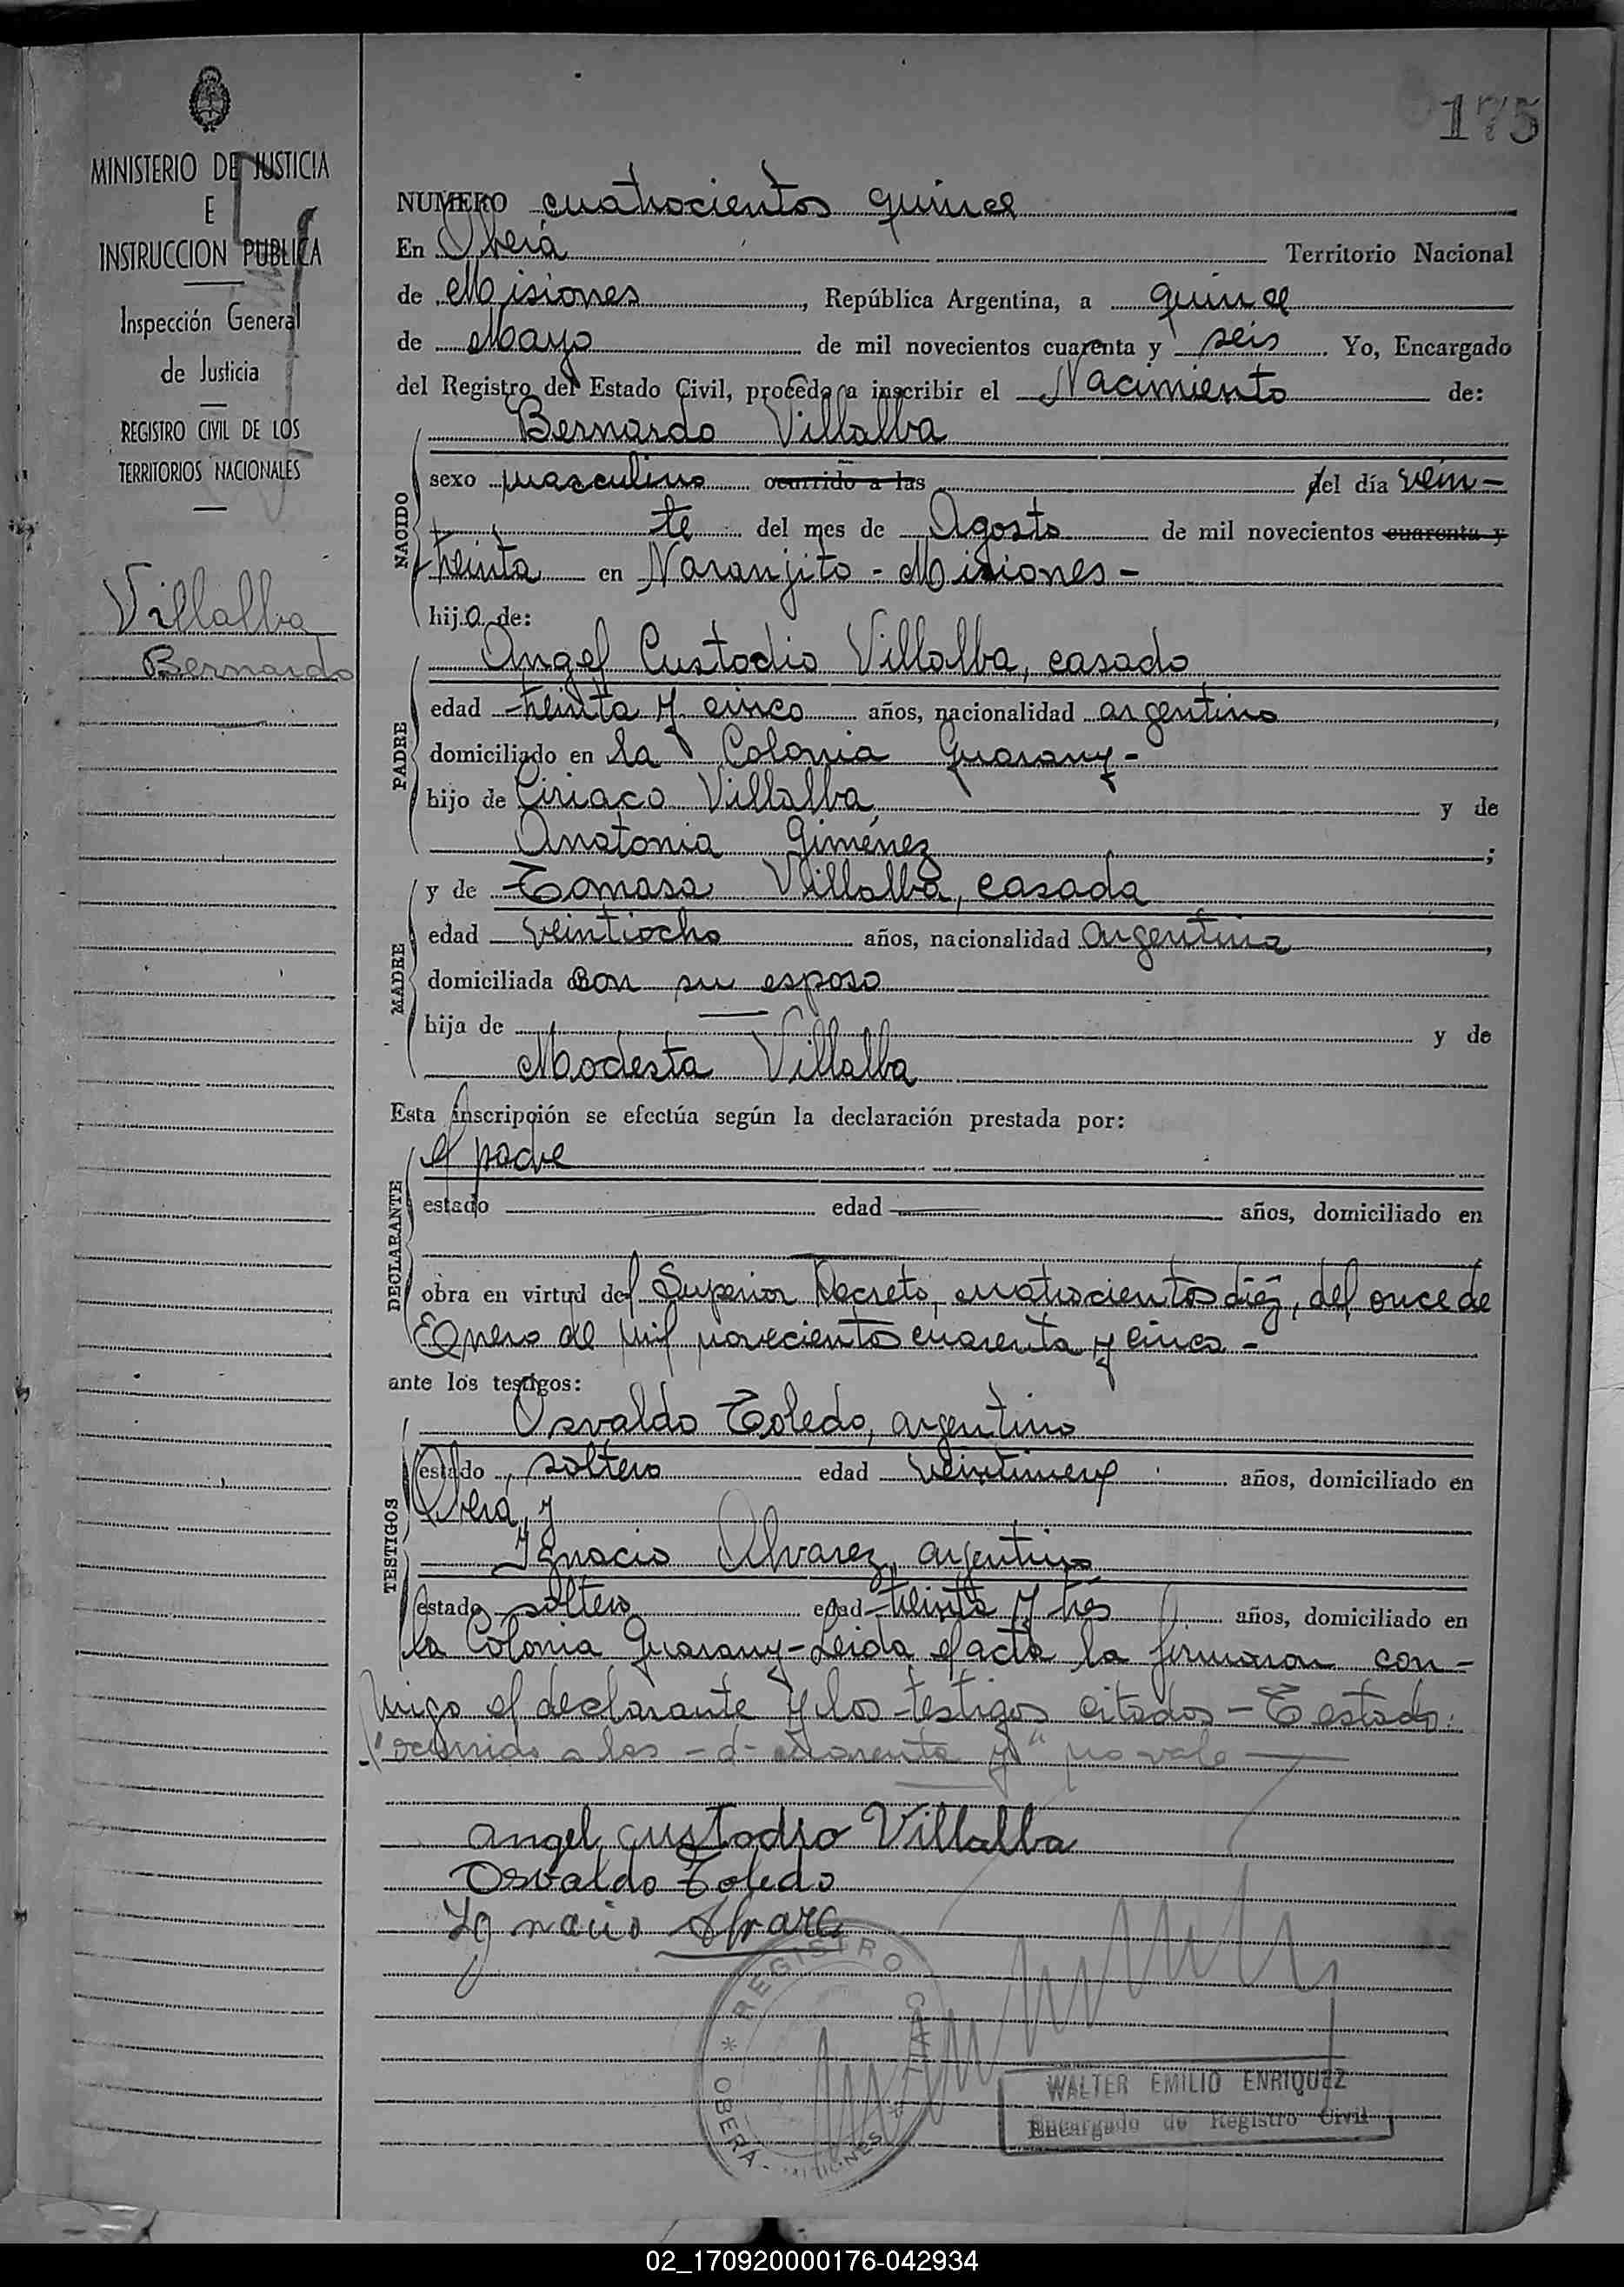 175
MINISTERIO DE JUSTICIA
E
INSTRUCCION PUBLICA
Inspección General
de Justicia
REGISTRO CIVIL DE LOS
TERRITORIOS NACIONALES
Villalba
Bernardo
NUMERO cuatrocientos quince
En Oberá Territorio Nacional
de Misiones, República Argentina, a quince
de Mayo de mil novecientos cuarenta y seis. Yo, Encargado
del Registro del Estado Civil, procedo a inscribir el Nacimiento de:
NACIDO
Bernardo Villalba
sexo masculino ocurrido a las del día vein-
te del mes de Agosto de mil novecientos cuarenta y
treinta en Naranjito - Misiones -
hijo de:
PADRE
Angel Custodio Villalba, casado
edad treinta y cinco años, nacionalidad argentino,
domiciliado en la Colonia Guarany -
hijo de Ciriaco Villalba y de
Anatonia Giménez;
MADRE
y de Tomasa Villalba, casada
edad veintiocho años, nacionalidad argentina,
domiciliada con su esposo
hija de — y de
Modesta Villalba
Esta inscripción se efectúa según la declaración prestada por:
DECLARANTE
el padre
estado — edad — años, domiciliado en
—
obra en virtud del Superior Decreto, cuatrocientos diéz, del once de
Enero de mil novecientos cuarenta y cinco -
ante los testigos:
TESTIGOS
Osvaldo Toledo, argentino
estado soltero edad veintinueve años, domiciliado en
Oberá, y
Ignacio Alvarez, argentino
estado soltero edad treinta y tres años, domiciliado en
la Colonia Guarany - Leida el acta la firmaron con-
migo el declarante y los testigos citados - Testado:
"ocurrido a las - d - cuarenta y" no vale —
angel custodio Villalba
Osvaldo Toledo
Ignacio
REGISTRO CIVIL
* OBERÁ - MISIONES *
WALTER EMILIO ENRIQUEZ
Encargado de Registro Civil
02_170920000176-042934